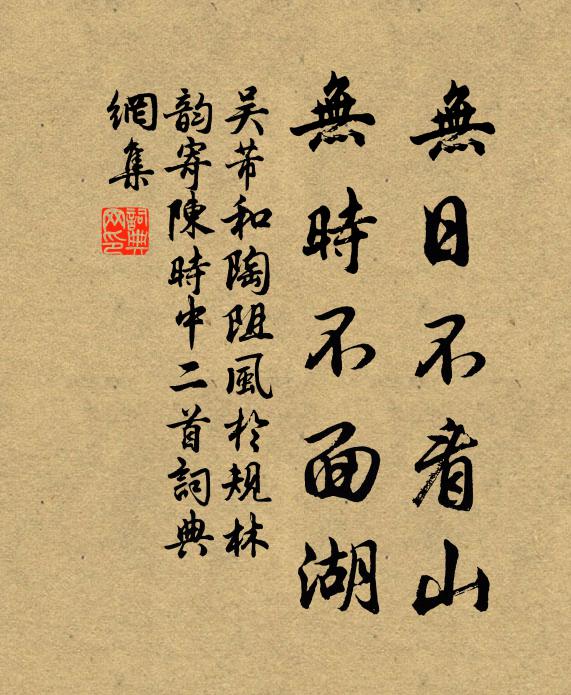 無日不看山
無時不面湖
吴芾和陶阻風於規林
韵寄陳時中二首詞典
網集
詞典
网印